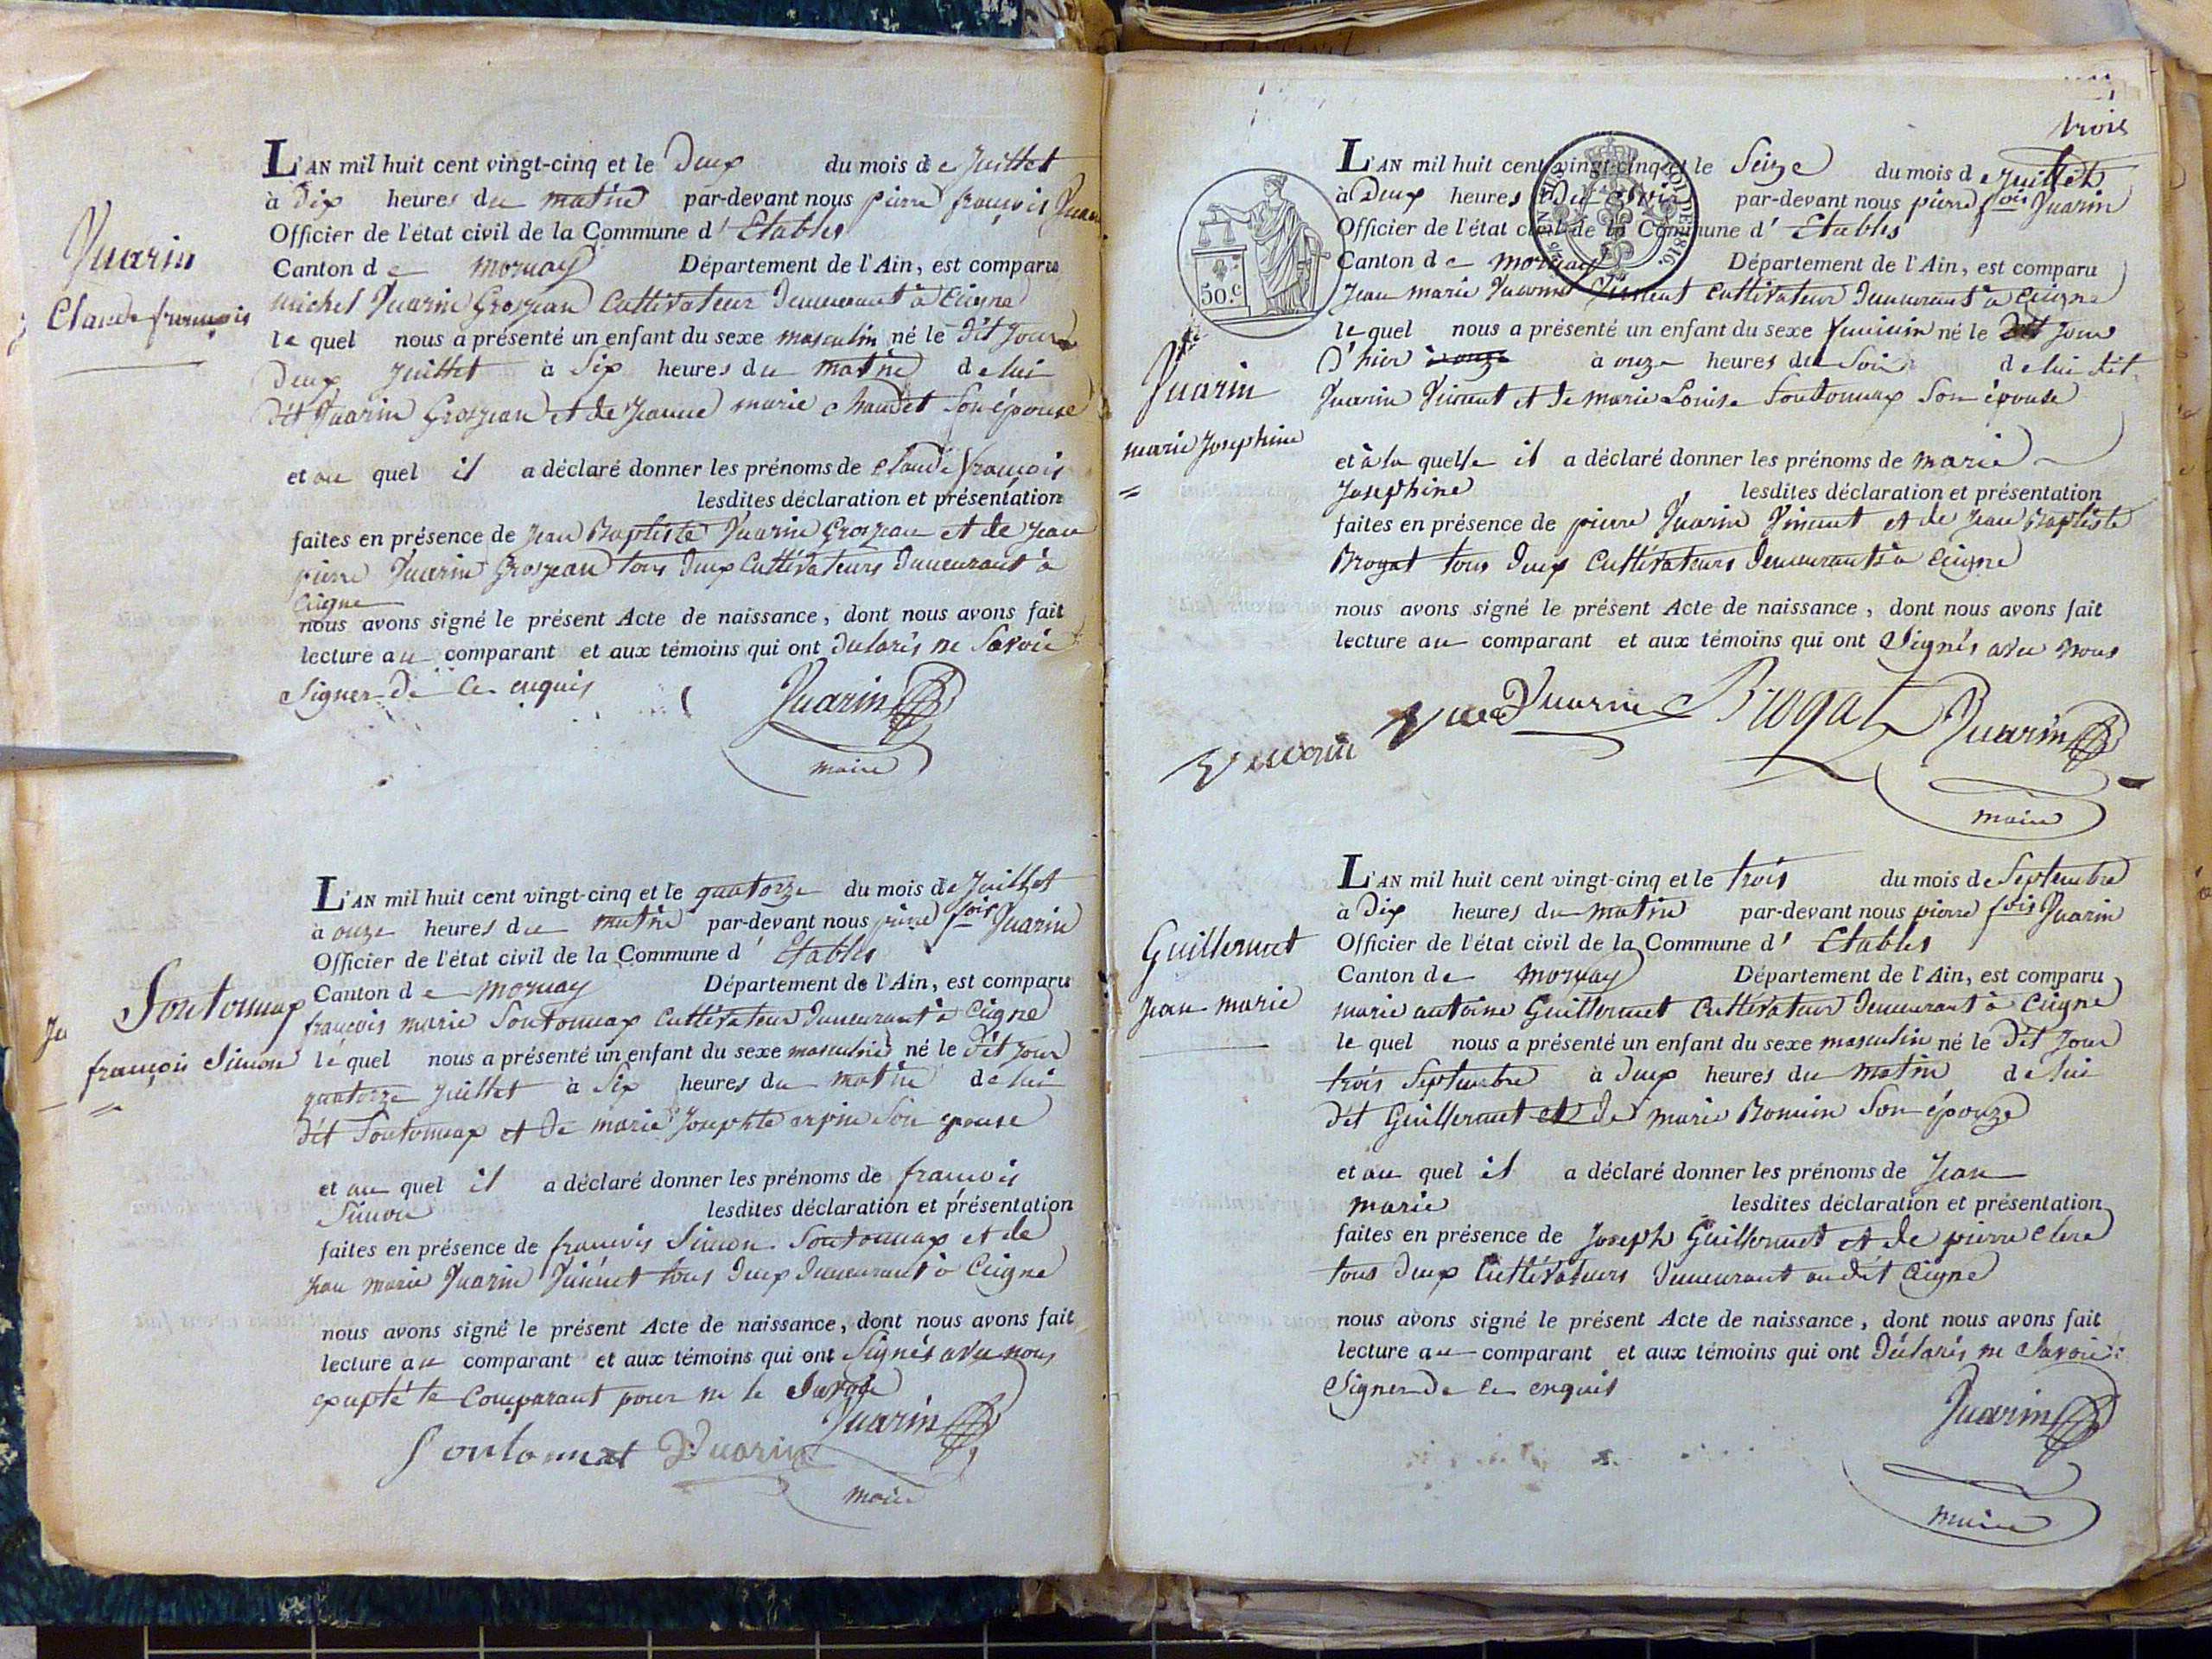 Vuarin
Claude françois
L'AN mil huit cent vingt-cinq et le Deux du mois de Juillet
à Dix heures du matin par-devant nous pierre françois Vuarin
Officier de l'état civil de la Commune d' Etables
Canton de mornay Département de l'Ain, est comparu
michel Vuarin Grosjean Cultivateur Demeurant à Ceigne
le quel nous a présenté un enfant du sexe masculin né le dit Jour
Deux Juillet à Six heures du matin de lui
dit Vuarin Grosjean et de Jeanne marie chaudet Son épouse
et au quel il a déclaré donner les prénoms de Claude françois
lesdites déclaration et présentation
faites en présence de Jean Baptiste Vuarin Grosjean et de Jean
pierre Vuarin Grosjean tous Deux Cultivateurs Demeurant à
Ceigne
nous avons signé le présent Acte de naissance, dont nous avons fait
lecture au comparant et aux témoins qui ont Declarés ne Savoir
Signer de Ce enquis
Vuarin
maire
Soutonnax
françois Simon
L'AN mil huit cent vingt-cinq et le quatorze du mois de Juillet
à onze heures du matin par-devant nous pierre fois Vuarin
Officier de l'état civil de la Commune d' Etables
Canton de mornay Département de l'Ain, est comparu
françois marie Soutonnax Cultivateur Demeurant à Ceigne
le quel nous a présenté un enfant du sexe masculin né le dit Jour
quatorze Juillet à Six heures du matin de lui
dit Soutonnax et de marie Josephte arpin Son epouse
et au quel il a déclaré donner les prénoms de françois
Simon lesdites déclaration et présentation
faites en présence de françois Simon Soutonnax et de
Jean marie Vuarin Vincent tous Deux Demeurant à Ceigne
nous avons signé le présent Acte de naissance, dont nous avons fait
lecture au comparant et aux témoins qui ont Signés avec nous
excepté le Comparant pour ne le Savoir
Vuarin
Soutonnat Vuarin
maire
trois
50.c
Vuarin
marie Josephine
L'AN mil huit cent vingt-cinq et le Seize du mois de Juillet
à Deux heures du Soir par-devant nous pierre fois Vuarin
Officier de l'état civil de la Commune d' Etables
Canton de mornay Département de l'Ain, est comparu
Jean marie Vuarin Vincent Cultivateur Demeurant à Ceigne
le quel nous a présenté un enfant du sexe feminin né le Jour
D'hier à onze heures du Soir de lui dit
Vuarin Vincent et de marie Louise Soutonnax Son épouse
et à la quelle il a déclaré donner les prénoms de marie
Josephine lesdites déclaration et présentation
faites en présence de pierre Vuarin Vincent et de Jean Baptiste
Brogat tous Deux Cultivateurs Demeurants à Ceigne
nous avons signé le présent Acte de naissance, dont nous avons fait
lecture au comparant et aux témoins qui ont Signés avec Nous
Vuarin Brogat Vuarin
maire
Guillermet
Jean marie
L'AN mil huit cent vingt-cinq et le trois du mois de Septembre
à Dix heures du matin par-devant nous pierre fois Vuarin
Officier de l'état civil de la Commune d' Etables
Canton de mornay Département de l'Ain, est comparu
marie antoine Guillermet Cultivateur Demeurant à Ceigne
le quel nous a présenté un enfant du sexe masculin né le dit Jour
trois Septembre à Deux heures du matin de lui
dit Guillermet et de marie Bomin Son épouze
et au quel il a déclaré donner les prénoms de Jean
marie lesdites déclaration et présentation
faites en présence de Joseph Guillermet et de pierre clerc
tous Deux Cultivateurs Demeurant audit Ceigne
nous avons signé le présent Acte de naissance, dont nous avons fait
lecture au comparant et aux témoins qui ont Déclarés ne Savoir
Signer de Ce enquis
Vuarin
maire